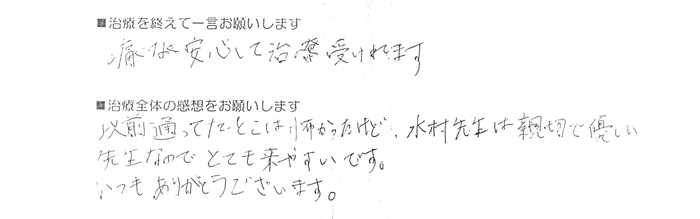 ■治療を終えて一言お願いします
痛くな 安心して治療受けれます
■治療全体の感想をお願いします
以前通ってたとこは怖かったけど、水村先生は親切で優しい
先生なのでとても来やすいです。
いつもありがとうございます。